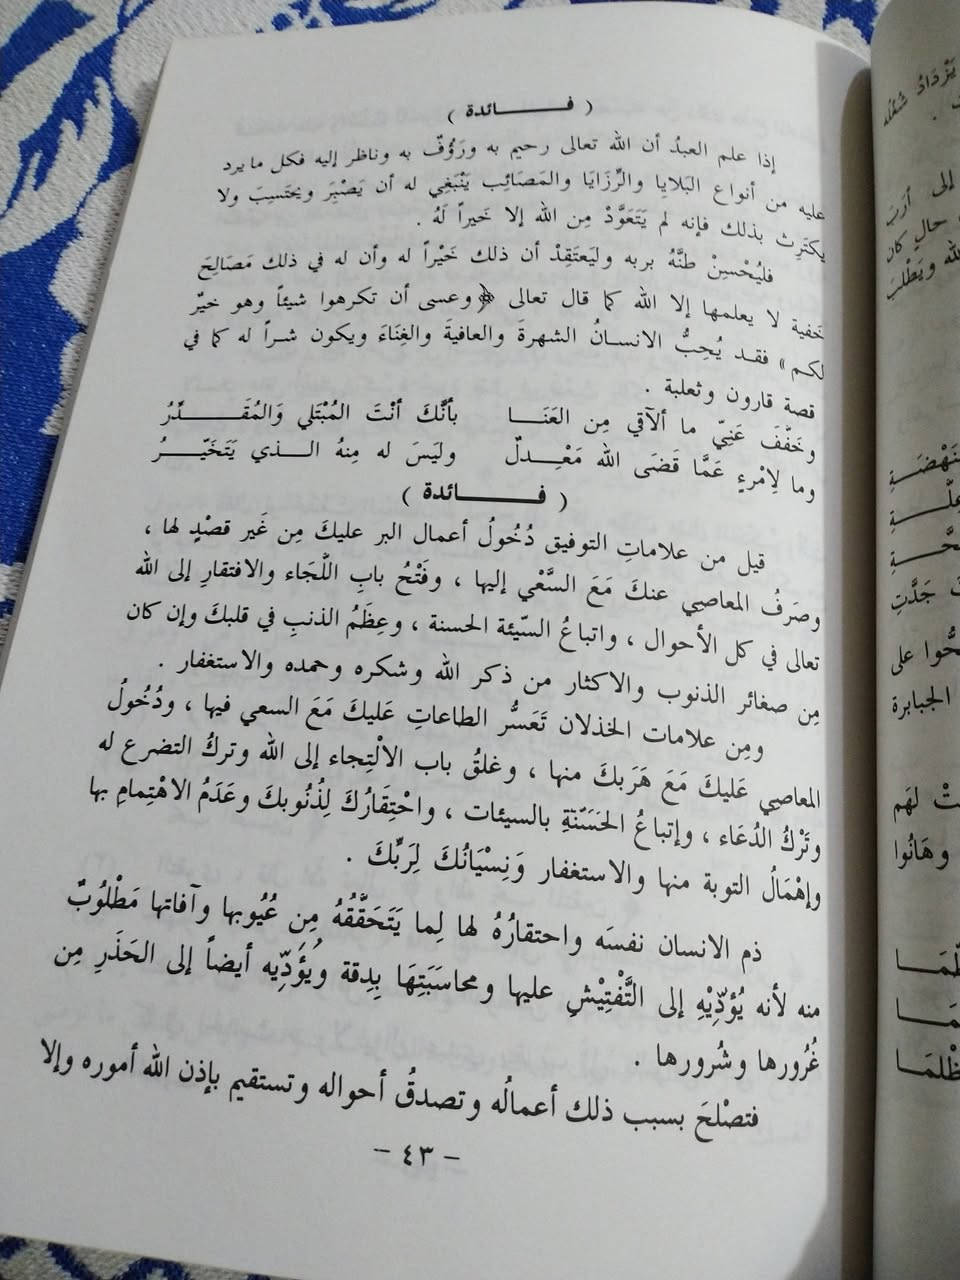 ( فــــــائدة )
إذا علم العبدُ أن الله تعالى رحيم به ورَؤُوفٌ به وناظر إليه فكل ما يرد
عليه من أنواع البَلايا والرَّزَايا والمَصَائب يَنْبَغِي له أن يَصْبَر ويحتَسِبَ ولا
يكتَرِث بذلك فإنه لم يَتَعَوَّدْ مِن الله إلا خَيراً لَهُ .
فليُحْسِنْ ظنَّهُ بربه وليَعتَقِدْ أن ذلك خَيْراً له وأن له في ذلك مَصَالِحَ
خَفية لا يعلمها إلا الله كما قال تعالى ﴿ وعسى أن تكرهوا شيئاً وهو خيرٌ
لكم ﴾ فقد يُحِبُّ الانسانُ الشهرةَ والعافيةَ والغِنَاءَ ويكون شراً له كما في
قصة قارون وثعلبة .
وخَفَّفَ عَنِيّ ما أُلآقي مِن العَنَـا بأنَّكَ أنْتَ المُبْتَلي وَالمُقَـــدِّرُ
وما لِامْرءٍ عَمَّا قَضَى الله مَعْـــدِلٌ وليَسَ له مِنهُ الـــذي يَتَخَيَّـــرُ
( فــــــائدة )
قيل من علاماتِ التوفيق دُخُولُ أعمال البر عليكَ مِن غَير قصْدٍ لها ،
وصرَفُ المعاصِي عنكَ مَعَ السَّعْي إليها ، وفَتْحُ بابِ اللَّجَاء والافتقارِ إلى الله
تعالى في كل الأحوال ، واتباعُ السَّيئة الحسنة ، وعِظَمُ الذنبِ في قلبكَ وإن كان
مِن صغائر الذنوب والاكثار من ذكر الله وشكره وحمده والاستغفار .
ومِن علامات الخذلان تَعَسُّر الطاعاتِ عَليكَ مَعَ السعي فيها ، ودُخُولُ
المعاصِي عَليكَ مَعَ هَرَبكَ منها ، وغلقُ باب الالْتِجاء إلى الله وتركُ التضرع له
وتَرْكُ الدُعَاء ، وإتباعُ الحَسَنَةِ بالسيئات ، واحْتِقارُكَ لِذُنُوبكَ وعَدَمُ الاهْتِمامِ بها
وإهْمَالُ التوبة منها والاستغفار وَنِسْيَانُكَ لِرَبِّكَ .
ذم الانسان نفسَه واحتقارُهُ لها لِما يَتَحَقَّقُهُ مِن عُيُوبها وآفاتها مَطْلُوبٌ
منه لأنه يُؤدِّيْهِ إلى التَّفْتِيْشِ عليها ومحاسَبَتِهَا بِدِقة ويُؤَدِّيه أيضاً إلى الحَذَرِ مِن
غُرُورها وشُرورها .
فتصْلحَ بسبب ذلك أعمالُه وتصدقُ أحواله وتستقيم بإذن الله أموره وإلا
– ٤٣ –
يَزْدَادُ شُغْلُه
إلى أرَبَ
حالٍ كان
لله ويَطْلبَ
نَهْضَةِ
عِلَّـــةِ
جَدَّتِ
الجبابرة
لهَم
وهَانُوا